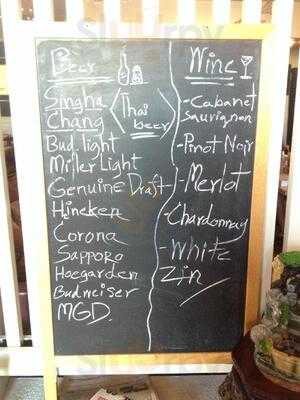 Beer
Singha
Chang
(Thai
beer)
Bud.light
Miller Light
Genuine Draft
Hineken
Corona
Sapporo
Hoegarden
Budweiser
MGD.
Wine
-Cabanet
Sauvignon
-Pinot Noir
-Merlot
-Chardonnay
-White
Zin